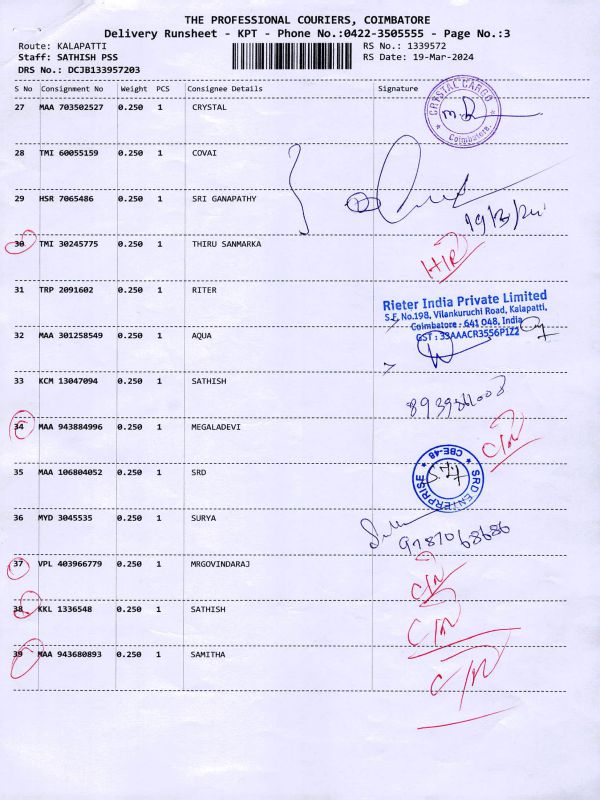 THE PROFESSIONAL COURIERS, COIMBATORE
Delivery Runsheet - KPT - Phone No.:0422-3505555 - Page No.:3
Route: KALAPATTI
RS No.: 1339572
Staff: SATHISH PSS
RS Date: 19-Mar-2024
DRS No.: DCJB133957203
S No Consignment No Weight PCS Consignee Details Signature
27 MAA 703502527 0.250 1 CRYSTAL
CRYSTAL CARGO
Coimbatore.
28 TMI 60055159 0.250 1 COVAI
29 HSR 7065486 0.250 1 SRI GANAPATHY
19/3/24
30 TMI 30245775 0.250 1 THIRU SANMARKA
31 TRP 2091602 0.250 1 RITER
Rieter India Private Limited
S.F. No.198, Vilankuruchi Road, Kalapatti,
Coimbatore - 641 048, India
GST : 33AAACR3556P1Z2
32 MAA 301258549 0.250 1 AQUA
33 KCM 13047094 0.250 1 SATHISH
34 MAA 943884996 0.250 1 MEGALADEVI
C/R
35 MAA 106804052 0.250 1 SRD
SRD ENTERPRISE
CBE-48
36 MYD 3045535 0.250 1 SURYA
9787068686
37 VPL 403966779 0.250 1 MRGOVINDARAJ
C/R
38 KKL 1336548 0.250 1 SATHISH
C/R
39 MAA 943680893 0.250 1 SAMITHA
C/R